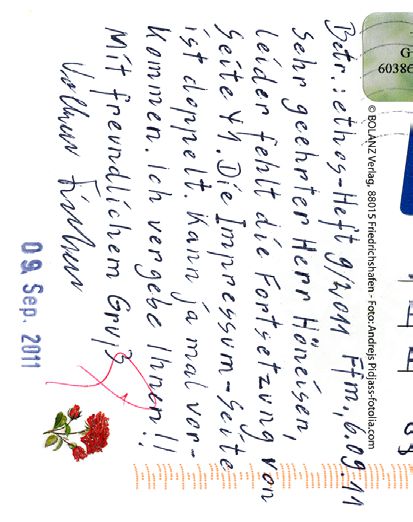 Betr.: ethos-Heft 9/2011 Ffm, 6.09.11
Sehr geehrter Herr Höneisen,
leider fehlt die Fortsetzung von
Seite 41. Die Impressum-Seite
ist doppelt. Kann ja mal vor-
kommen. Ich vergebe Ihnen!!
Mit freundlichem Gruß
Volker
09. Sep. 2011
© BOLANZ Verlag, 88015 Friedrichshafen - Foto: Andrejs Pidjass-fotolia.com
G
6038